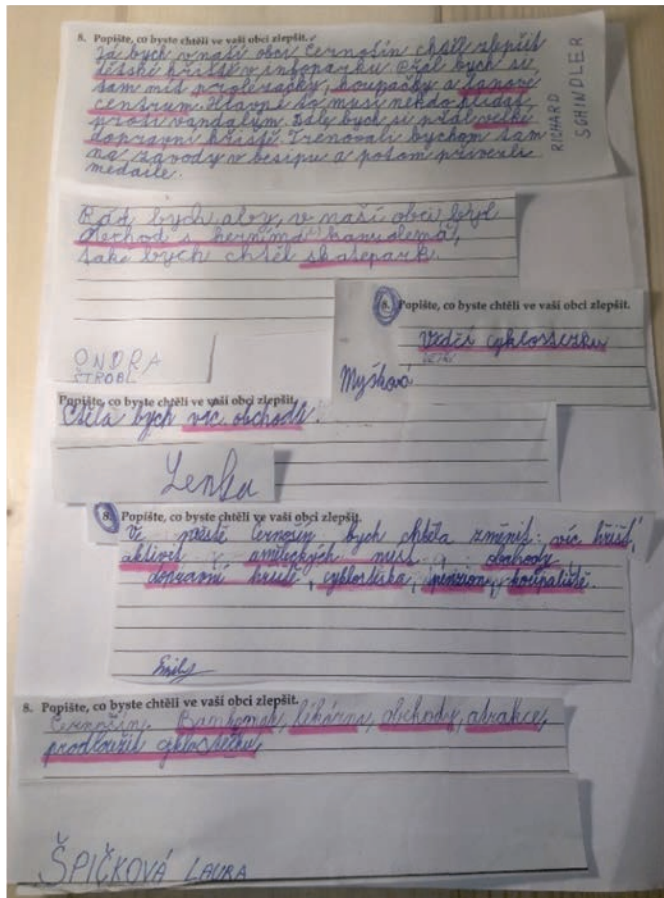 8. Popište, co byste chtěli ve vaší obci zlepšit.
Já bych v naší obci Černošín chtěl zlepšit
dětské hřiště v infoparku. Přál bych si,
tam mít prolézačky, houpačky a lanové
centrum. Hlavně to musí někdo hlídat,
proti vandalům. Dále bych si přál velké
dopravní hřiště. Trénovali bychom tam
na závody v besipu a potom přivezli
medaile.
RICHARD
SCHINDLER
Rád bych aby, v naší obci byl
obchod s herníma
také bych chtěl skatepark.
ONDRA
ŠTROBL
8. Popište, co byste chtěli ve vaší obci zlepšit.
cyklostezku
Myšková
Popište, co byste chtěli ve vaší obci zlepšit.
Chtěla bych víc obchodů.
Lenka
8. Popište, co byste chtěli ve vaší obci zlepšit.
Ve městě Černošín bych chtěla změnit: víc hřišť,
aktivit, obchody,
dopravní hřiště, cyklostezka, penziony, koupaliště.
Emily
8. Popište, co byste chtěli ve vaší obci zlepšit.
Černošín. Bankomat, lékárna, obchody, atrakce,
prodloužit
ŠPIČKOVÁ LAURA